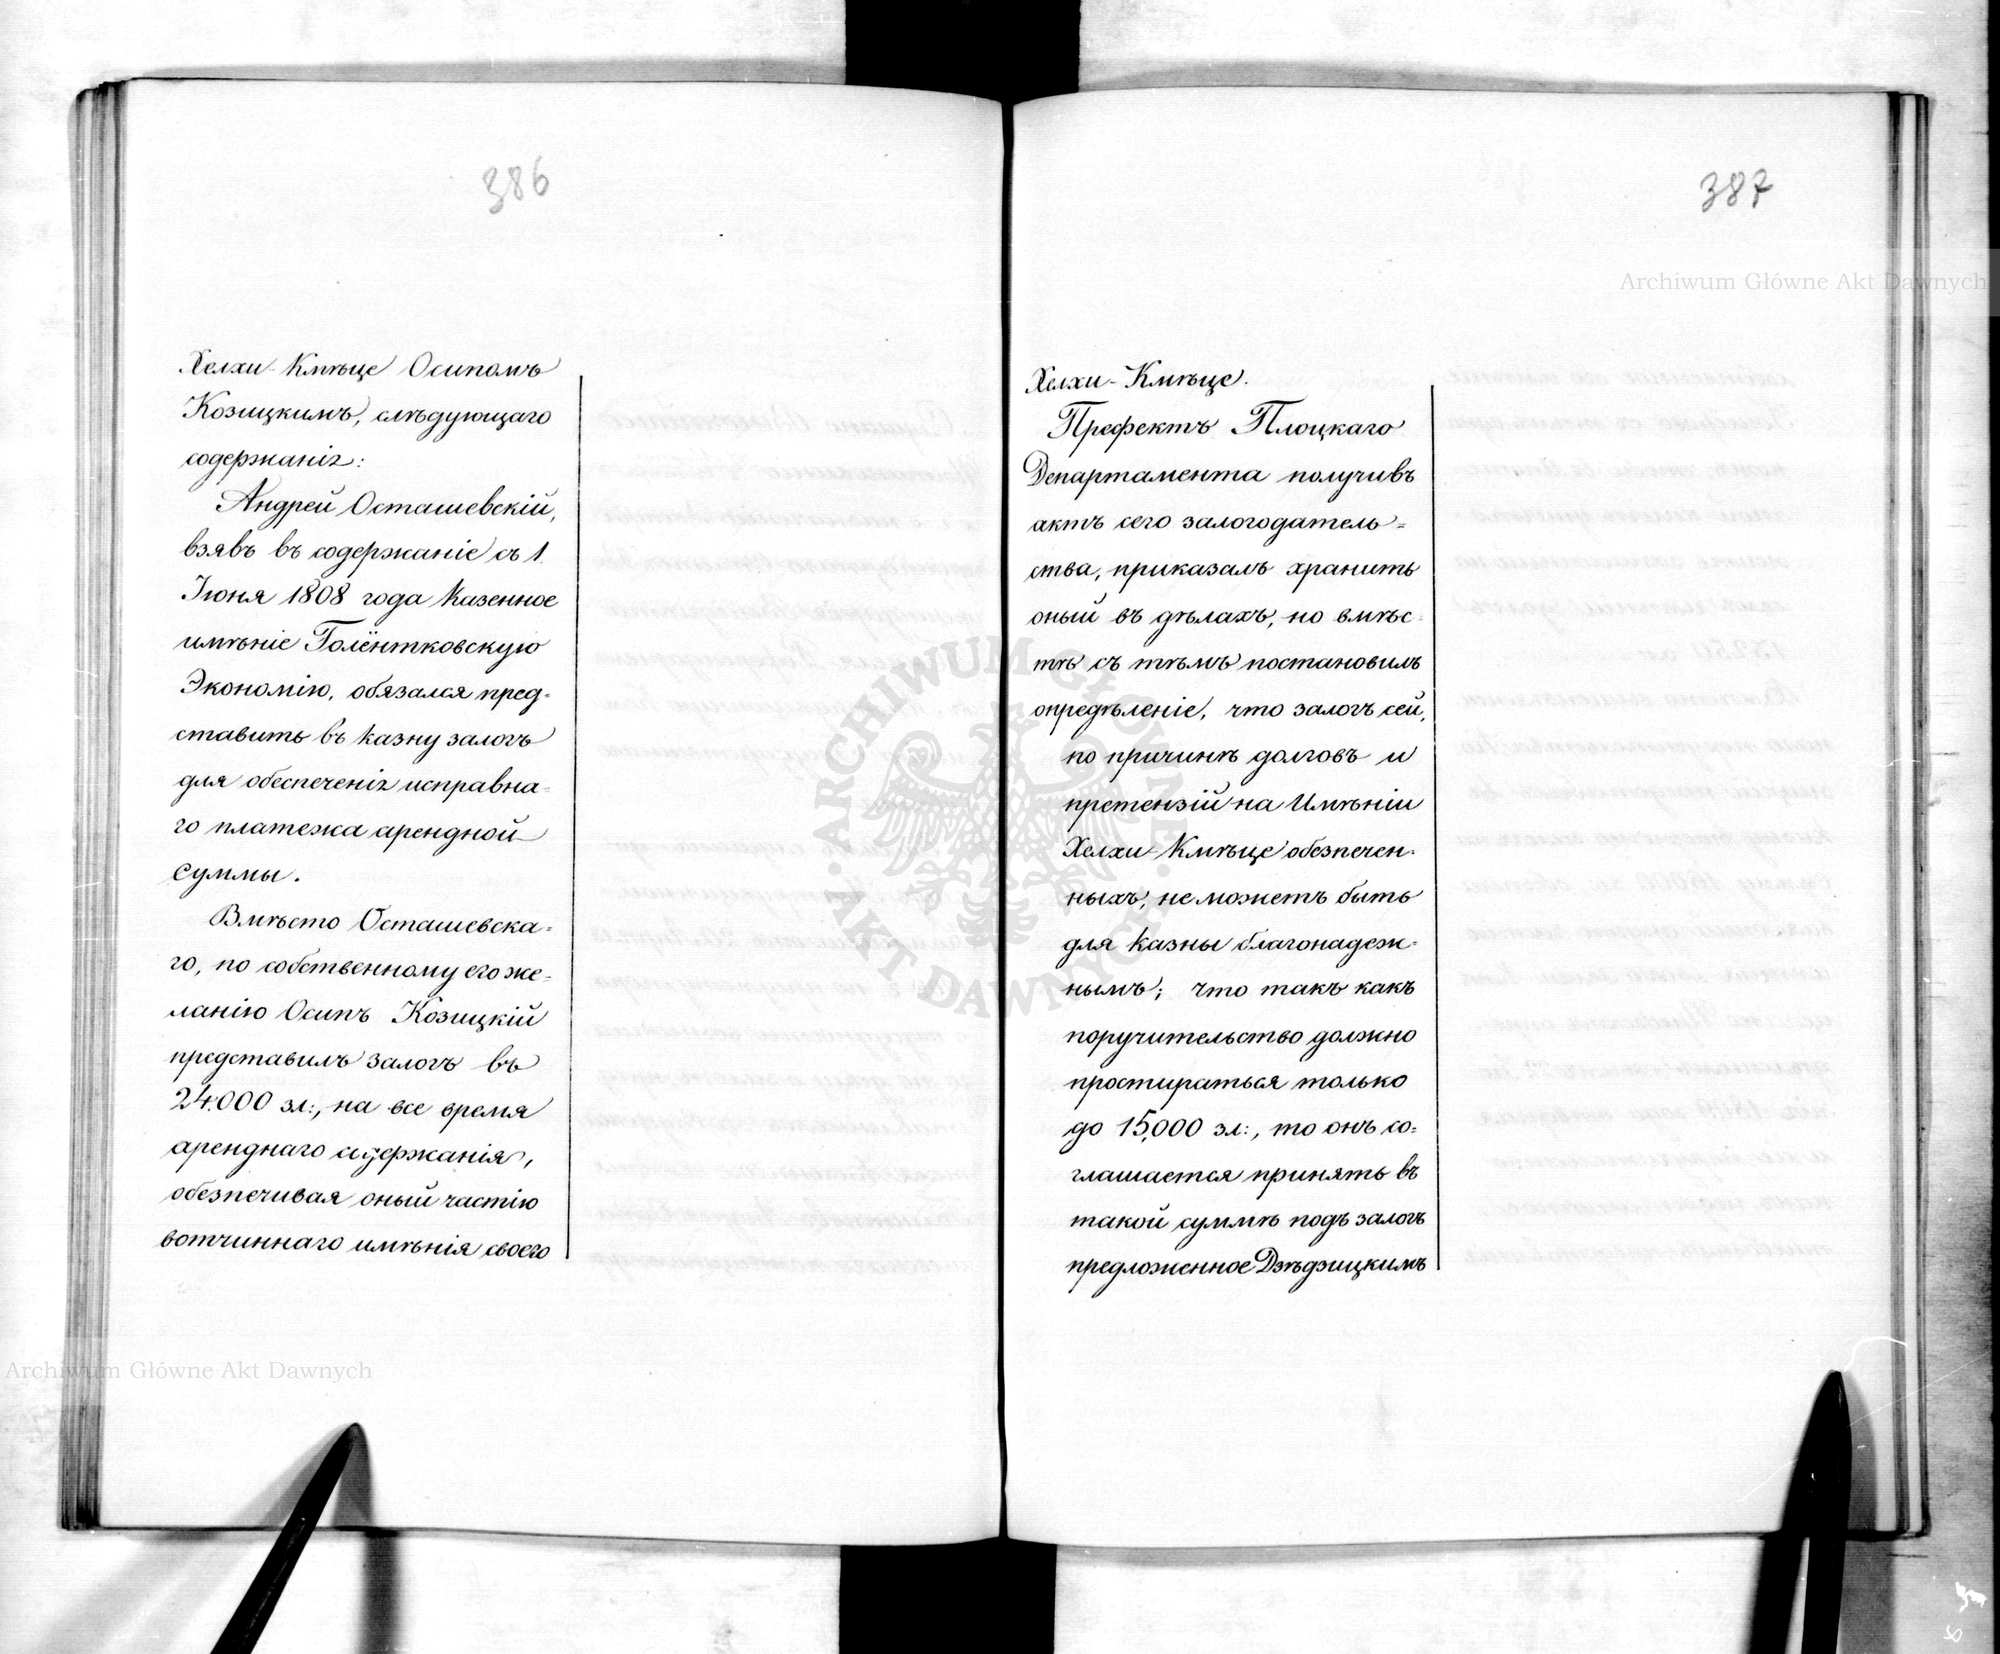 386
Хелхи-Кмѣце Осипомъ
Козицкимъ, слѣдующаго
содержанія:
Андрей Осташевскій,
взявъ въ содержаніе съ 1.
Іюня 1808 года казенное
имѣніе Голёнтковскую
Экономію, обязался пред-
ставить въ казну залогъ
для обеспеченія исправна-
го платежа арендной
суммы.
Вмѣсто Осташевска-
го, по собственному его же-
ланію Осипъ Козицкій
представилъ залогъ въ
24.000 зл:, на все время
аренднаго содержанія,
обезпечивая оный частію
вотчиннаго имѣнія своего
387
Хелхи-Кмѣце.
Префектъ Плоцкаго
Департамента получивъ
актъ сего залогодатель=
ства, приказалъ хранить
оный въ дѣлахъ, но вмѣс-
тѣ съ тѣмъ постановилъ
опредѣленіе, что залогъ сей,
по причинѣ долговъ и
претензій на Имѣніи
Хелхи-Кмѣце обезпечен-
ныхъ, не можетъ быть
для казны благонадеж-
нымъ; что такъ какъ
поручительство должно
простираться только
до 15,000 зл:, то онъ со=
глашается принять въ
такой суммѣ подъ залогъ
предложенное Дзѣдзицкимъ
Archiwum Główne Akt Dawnych
Archiwum Główne Akt Dawnych
ARCHIWUM GŁÓWNE
AKT DAWNYCH